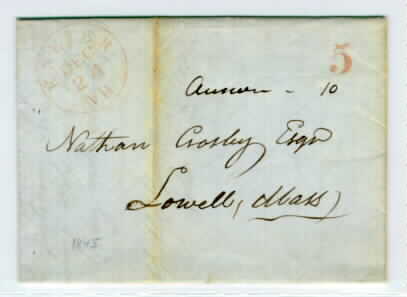 DEC
24
N.H
5
Answer - 10
Nathan Crosby Esqr
Lowell, Mass
1845